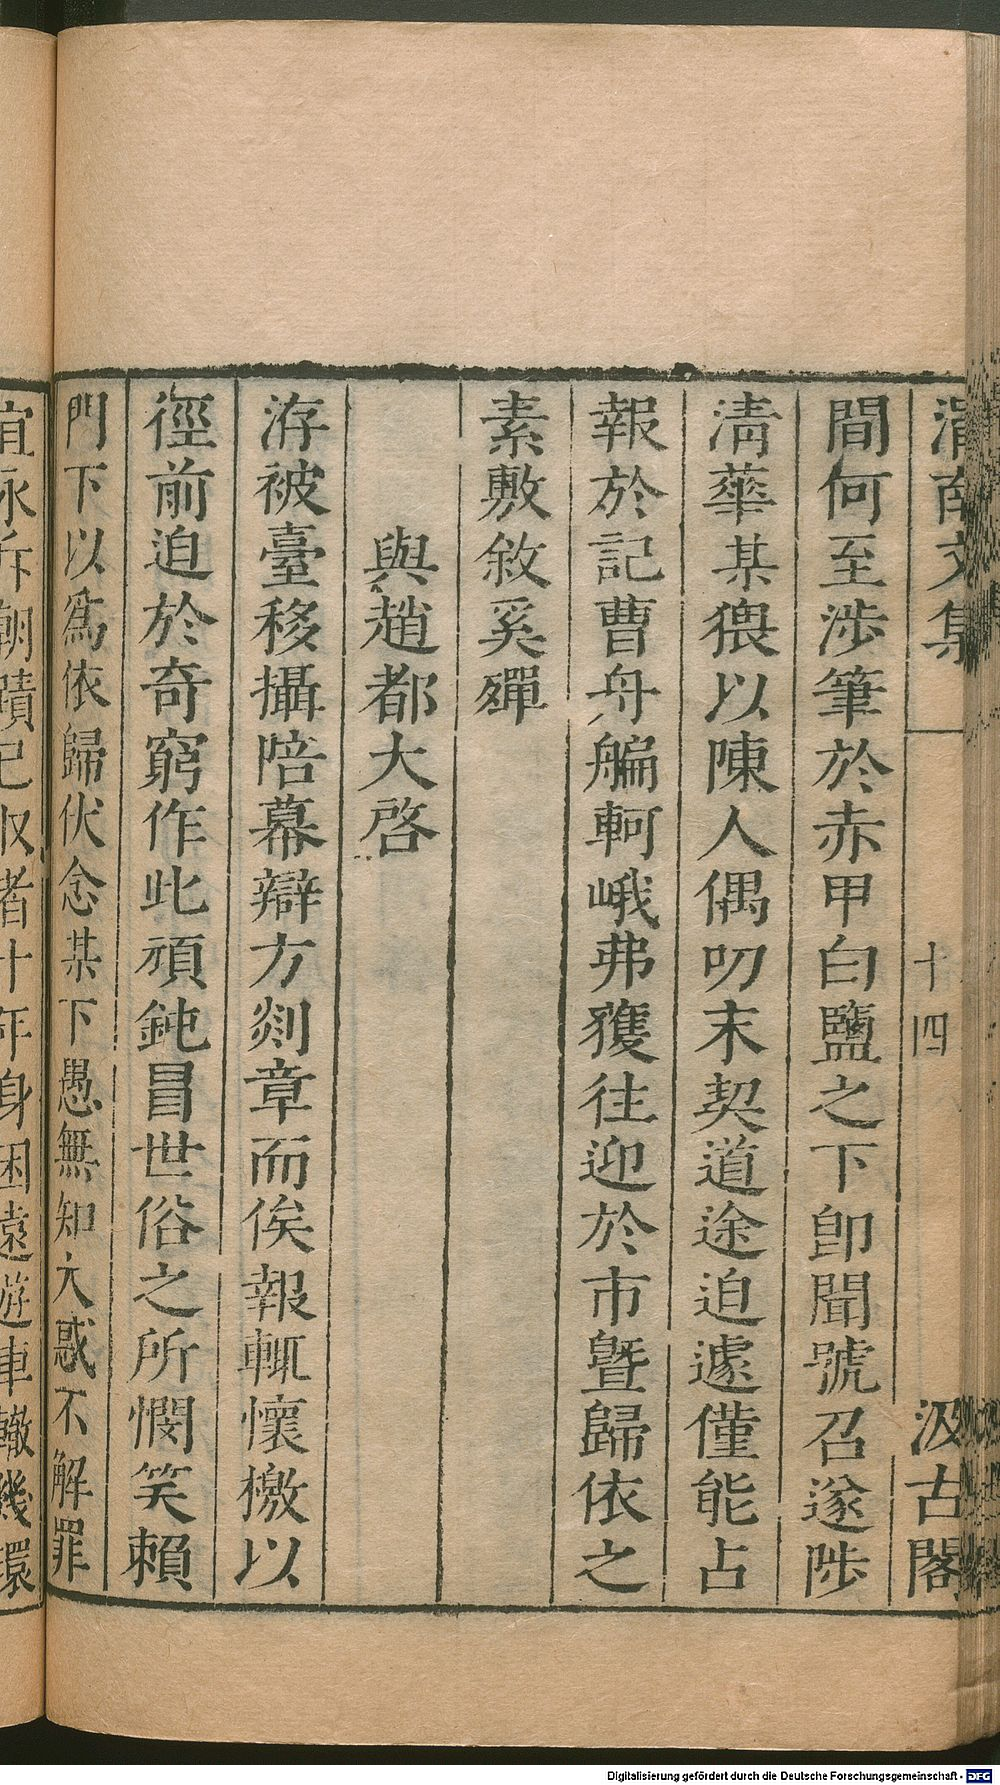 渭南文集
十四
汲古閣
間何至涉筆於赤甲白鹽之下卽聞號召遂陟
淸華某猥以陳人偶叨末契道途迫遽僅能占
報於記曹舟艑軻峨弗獲往迎於市暨歸依之
素敷敘奚殫
與趙都大啓
洊被臺移攝陪幕辯方剡章而俟報輒懷檄以
徑前迫於奇窮作此頑鈍冒世俗之所憫笑賴
門下以爲依歸伏念某下愚無知大惑不解罪
宜永斥朝蹟已收者十年身困遠遊車轍幾環
Digitalisierung gefördert durch die Deutsche Forschungsgemeinschaft - DFG